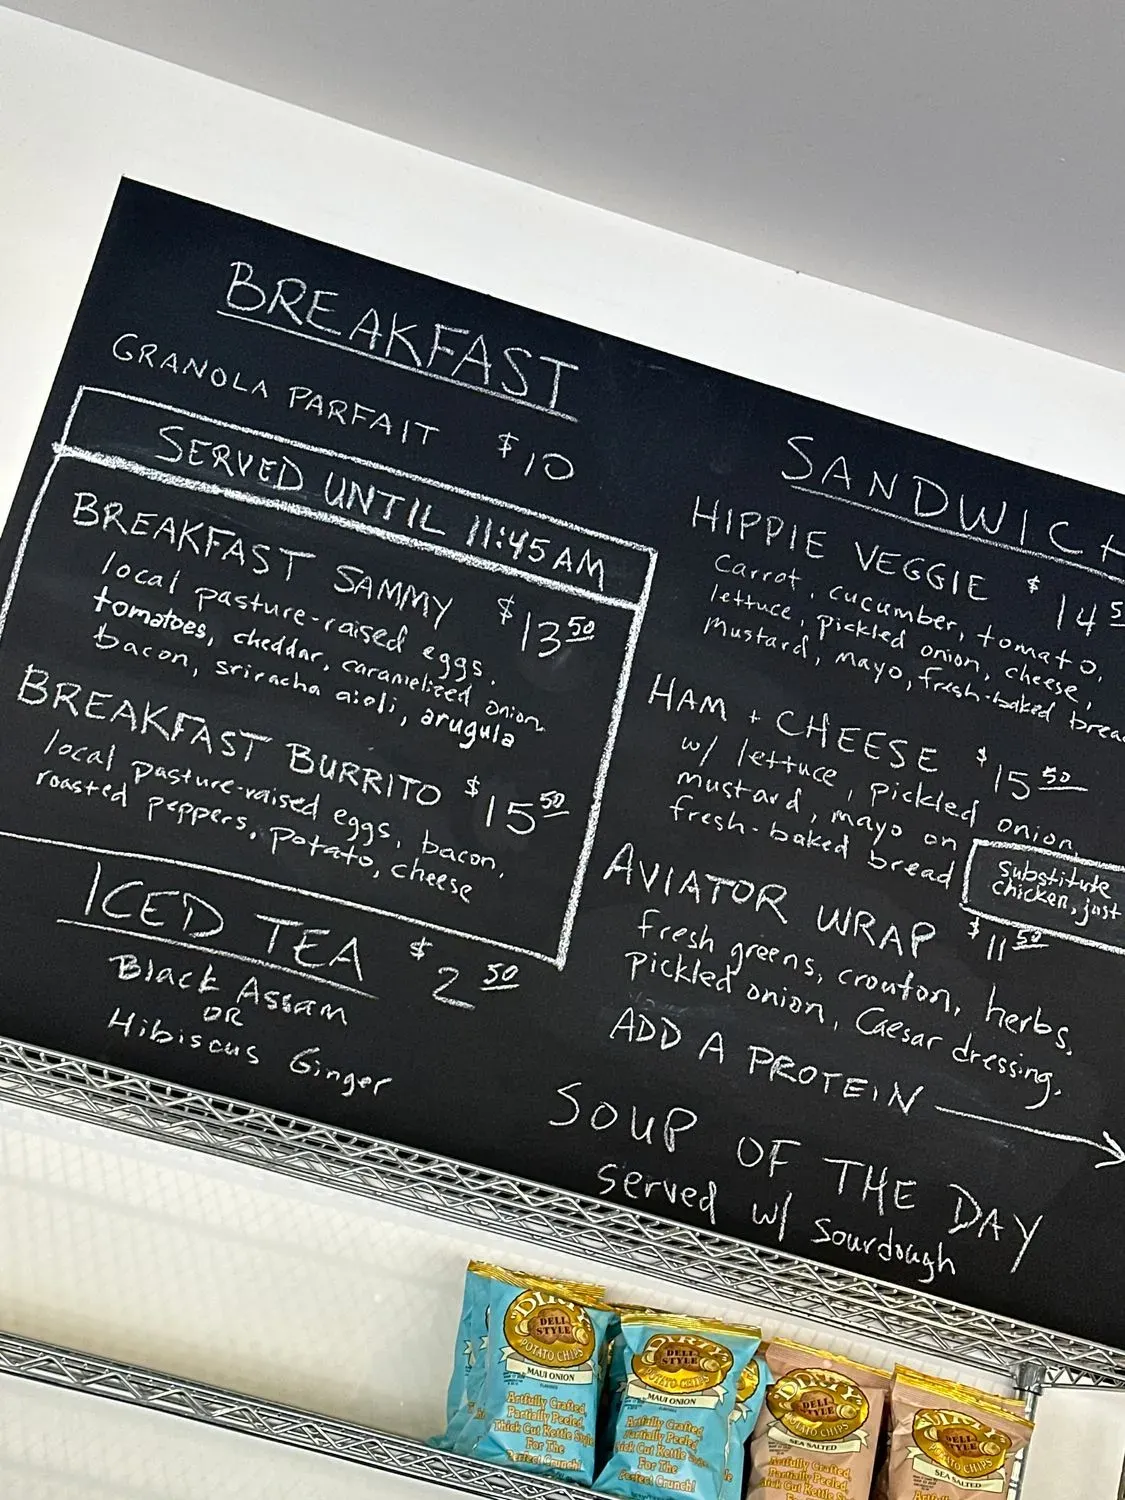 BREAKFAST
GRANOLA PARFAIT $10
SERVED UNTIL 11:45 AM
BREAKFAST SAMMY $13 50
local pasture-raised eggs,
tomatoes, cheddar, caramelized onion,
bacon, sriracha aioli, arugula
BREAKFAST BURRITO $15 50
local pasture-raised eggs, bacon,
roasted peppers, potato, cheese
ICED TEA $2 50
Black Assam
OR
Hibiscus Ginger
SANDWICH
HIPPIE VEGGIE $14 5
Carrot, cucumber, tomato,
lettuce, pickled onion, cheese,
mustard, mayo, fresh-baked brea
HAM + CHEESE $15 50
w/ lettuce, pickled onion,
mustard, mayo on
fresh-baked bread
Substitute
chicken, just
AVIATOR WRAP $11 50
fresh greens, crouton, herbs,
pickled onion, Caesar dressing,
ADD A PROTEIN
SOUP OF THE DAY
served w/ sourdough
"DIRTY"
DELI
STYLE
POTATO CHIPS
MAUI ONION
Artfully Crafted,
Partially Peeled,
Thick Cut Kettle Style
For The
Perfect Crunch!
DIRTY
DELI
STYLE
POTATO CHIPS
MAUI ONION
Artfully Crafted
Partially Peeled,
For The
Perfect Crunch!
DIRTY
DELI
STYLE
POTATO CHIPS
SEA SALTED
Artfully Crafted,
Partially Peeled,
Thick Cut Kettle Style
DIRTY
DELI
STYLE
POTATO CHIPS
SEA SALTED